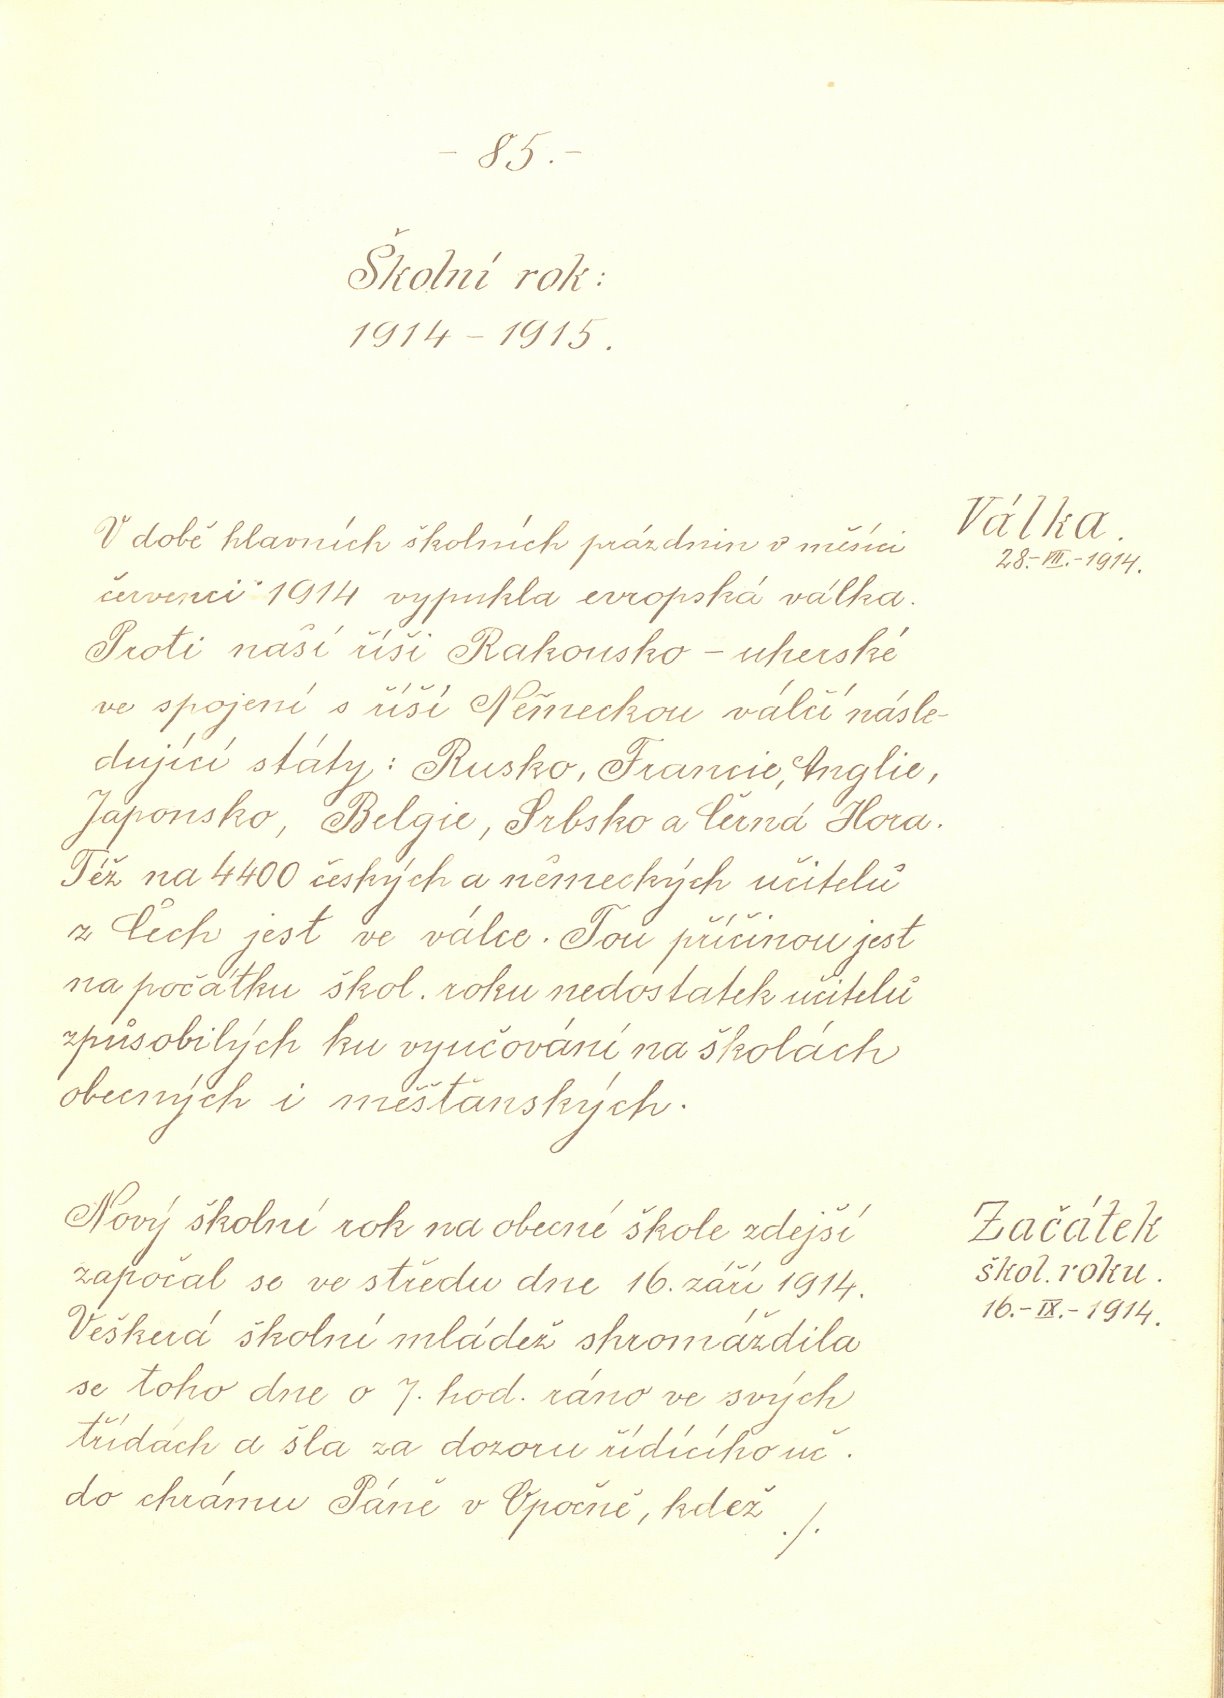 - 85. -
Školní rok:
1914 - 1915.
Válka.
28.-VII.-1914.
V době hlavních školních prázdnin v měsíci
červenci 1914 vypukla evropská válka.
Proti naší říši Rakousko - uherské
ve spojení s říší Německou válčí násle-
dující státy: Rusko, Francie, Anglie,
Japonsko, Belgie, Srbsko a Černá Hora.
Též na 4400 českých a německých učitelů
z Čech jest ve válce. Tou příčinou jest
na počátku škol. roku nedostatek učitelů
způsobilých ku vyučování na školách
obecných i měšťanských.
Začátek
škol. roku.
16.-IX.-1914.
Nový školní rok na obecné škole zdejší
započal se ve středu dne 16. září 1914.
Veškerá školní mládež shromáždila
se toho dne o 7. hod. ráno ve svých
třídách a šla za dozoru řídícího uč.
do chrámu Páně v Opočně, kdež ./.